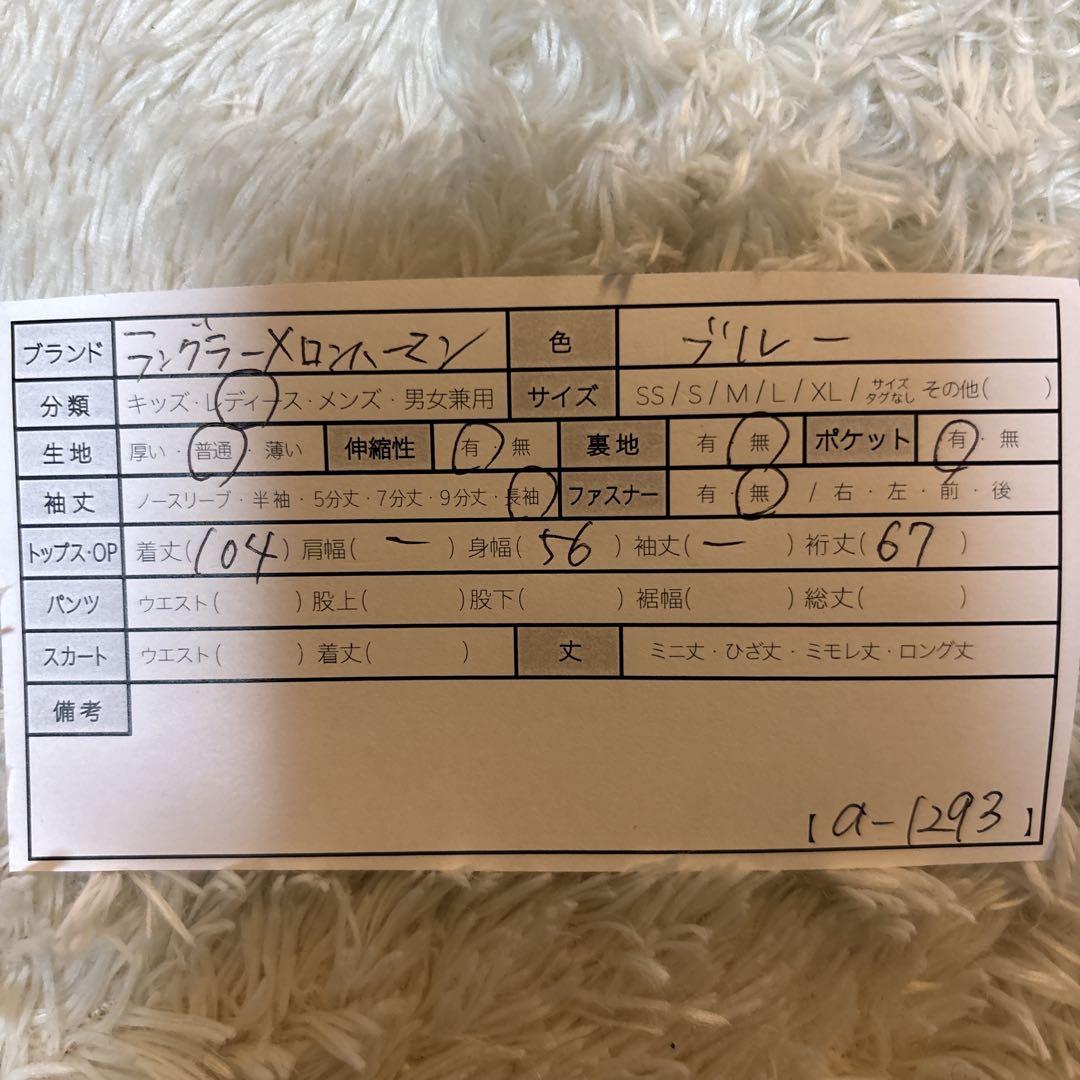 ブランド ラングラー×ロンハーマン 色 ブルー
分類 キッズ・レディース・メンズ・男女兼用 サイズ SS/S/M/L/XL/サイズタグなし その他( )
生地 厚い・普通・薄い 伸縮性 有・無 裏地 有・無 ポケット 有・無
袖丈 ノースリーブ・半袖・5分丈・7分丈・9分丈・長袖 ファスナー 有・無 / 右・左・前・後
トップス・OP 着丈(104) 肩幅(ー) 身幅(56) 袖丈(ー) 裄丈(67)
パンツ ウエスト( ) 股上( ) 股下( ) 裾幅( ) 総丈( )
スカート ウエスト( ) 着丈( ) 丈 ミニ丈・ひざ丈・ミモレ丈・ロング丈
備考
【a-1293】